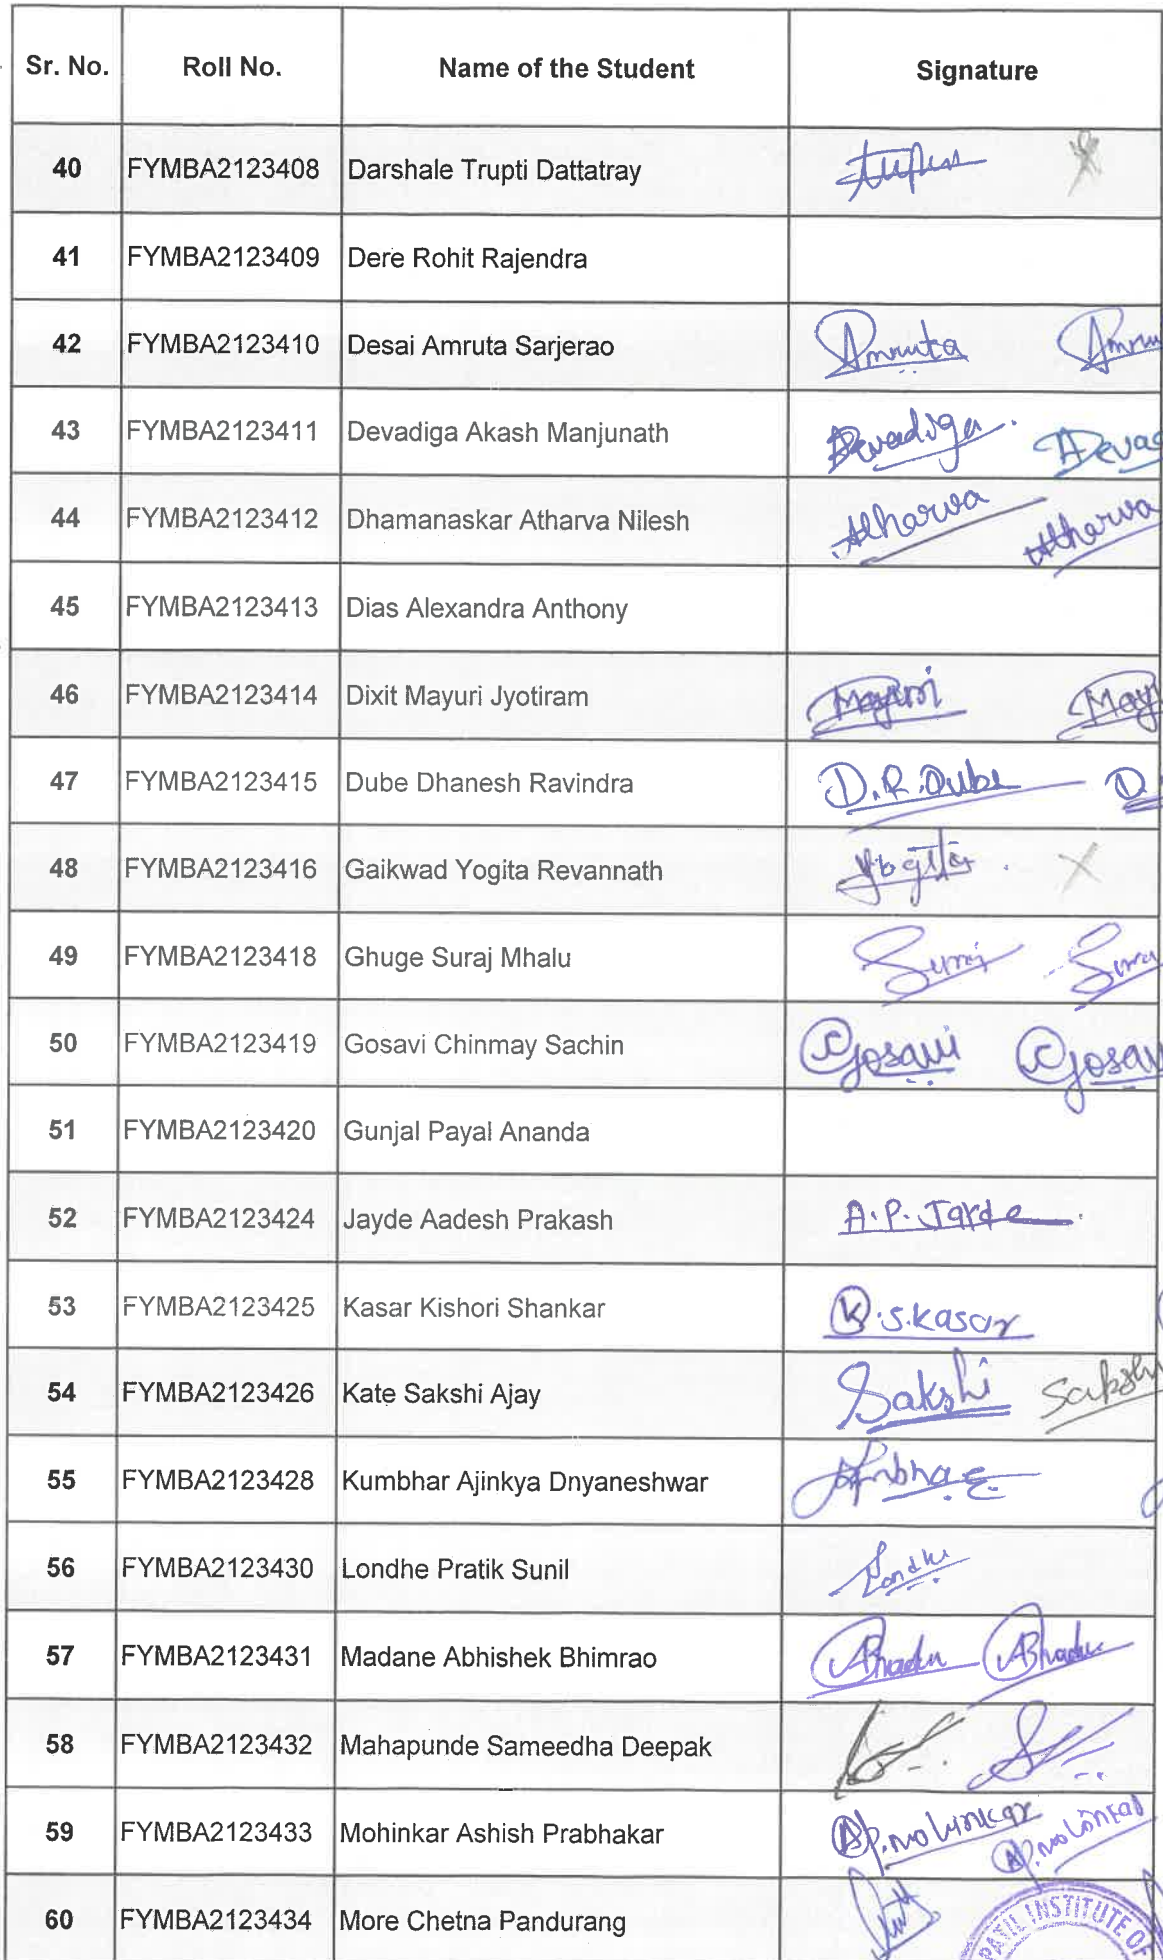 Sr. No. Roll No. Name of the Student Signature
40 FYMBA2123408 Darshale Trupti Dattatray
41 FYMBA2123409 Dere Rohit Rajendra
42 FYMBA2123410 Desai Amruta Sarjerao Amruta Amru
43 FYMBA2123411 Devadiga Akash Manjunath Devadiga. Devad
44 FYMBA2123412 Dhamanaskar Atharva Nilesh Atharva Atharva
45 FYMBA2123413 Dias Alexandra Anthony
46 FYMBA2123414 Dixit Mayuri Jyotiram Mayuri May
47 FYMBA2123415 Dube Dhanesh Ravindra D.R.Dube D.
48 FYMBA2123416 Gaikwad Yogita Revannath Yogita X
49 FYMBA2123418 Ghuge Suraj Mhalu Suraj Suraj
50 FYMBA2123419 Gosavi Chinmay Sachin CGosavi CGosav
51 FYMBA2123420 Gunjal Payal Ananda
52 FYMBA2123424 Jayde Aadesh Prakash A.P. Jayde
53 FYMBA2123425 Kasar Kishori Shankar K.S.Kasar
54 FYMBA2123426 Kate Sakshi Ajay Sakshi Sakshi
55 FYMBA2123428 Kumbhar Ajinkya Dnyaneshwar
56 FYMBA2123430 Londhe Pratik Sunil Londhe
57 FYMBA2123431 Madane Abhishek Bhimrao
58 FYMBA2123432 Mahapunde Sameedha Deepak
59 FYMBA2123433 Mohinkar Ashish Prabhakar AP.mohinkar AP.mohinkar
60 FYMBA2123434 More Chetna Pandurang
PATIL INSTITUTE OF